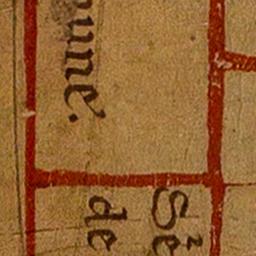 une.
Sè
de